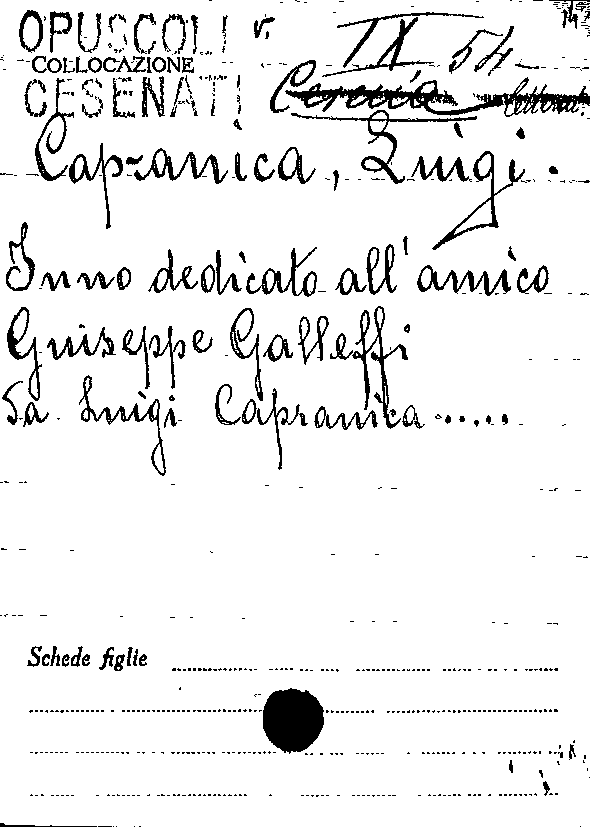 OPUSCOLI v. IX 54
COLLOCAZIONE
CESENATI
Capranica, Luigi.
Inno dedicato all'amico
Guiseppe Galleffi
Da Luigi Capranica.....
Schede figlie